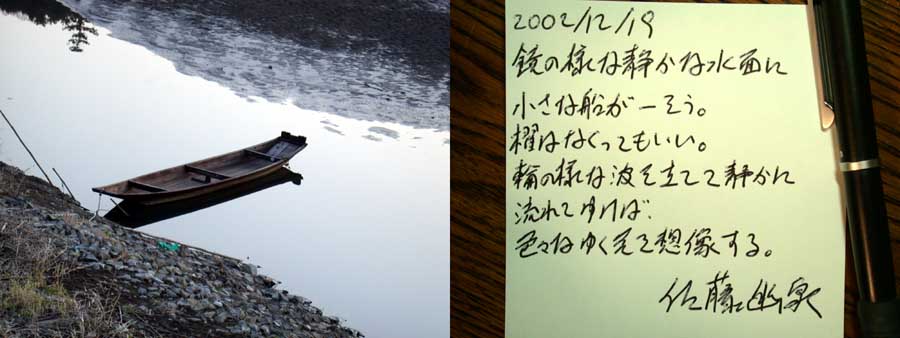 2002/12/19
鏡の様な静かな水面に
小さな船が一そう。
櫂はなくってもいい。
輪の様な波を立てて静かに
流れてゆけば、
色々なゆく先を想像する。
佐藤幽泉